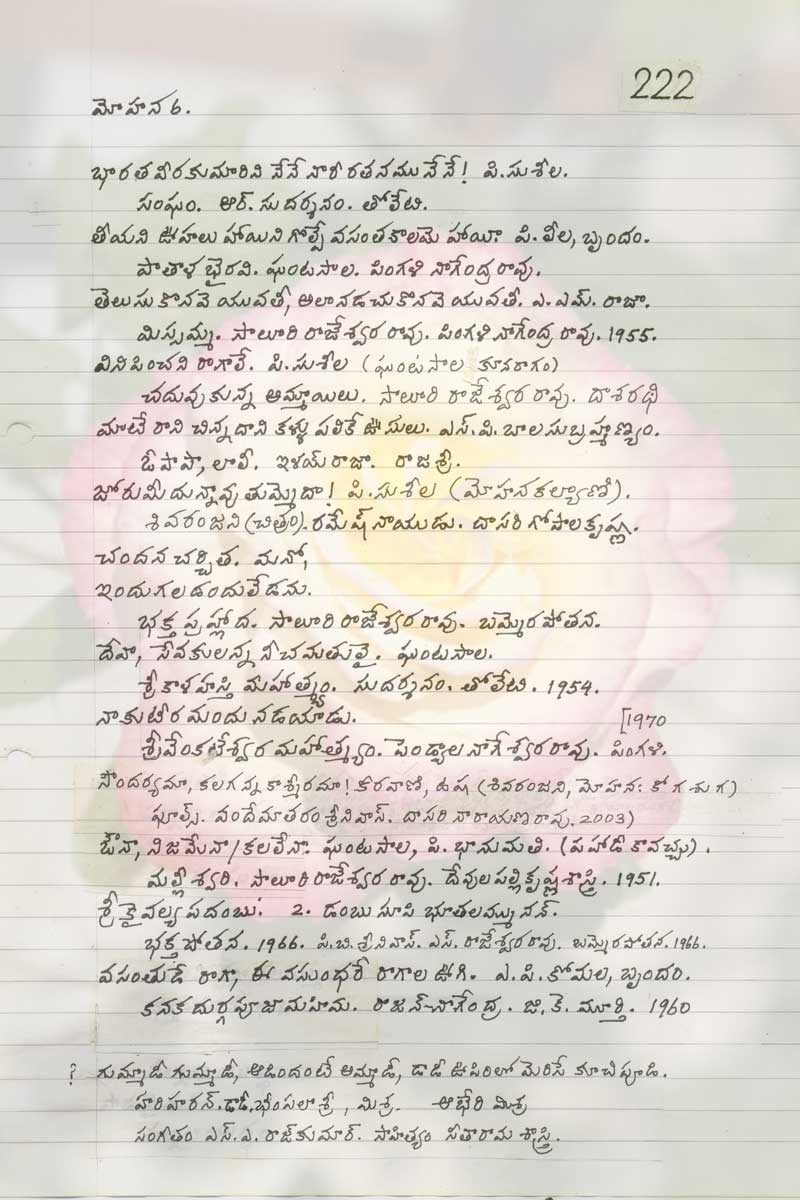 222
మోహన 6.
భారత వీరకుమారిని నేనే నారీ రతనము నేనే! పి.సుశీల.
సంఘం. ఆర్. సుదర్శనం. తోలేటి.
తీయని ఊహలు హాయిని గొల్పే వసంతకాలమె హాయీ. పి. లీల, బృందం.
పాతాళ భైరవి. ఘంటసాల. పింగళి నాగేంద్ర రావు.
తెలుసు కొనవె యువతీ, అలా నడచుకొనవె యువతీ. ఎ. ఎమ్. రాజా.
మిస్సమ్మ. సాలూరి రాజేశ్వర రావు. పింగళి నాగేంద్ర రావు. 1955.
వినిపించని రాగాలే. పి.సుశీల (ఘంటసాల కూనరాగం)
చదువుకున్న అమ్మాయిలు. సాలూరి రాజేశ్వర రావు. దాశరథి
మాటే రాని చిన్నదాని కళ్ళు పలికే ఊసులు. ఎస్. పి. బాలసుబ్రహ్మణ్యం.
ఓ పాపా, లాలీ. ఇళయ్ రాజా. రాజశ్రీ.
జోరుమీదున్నావు తుమ్మెదా! పి.సుశీల (మోహనకల్యాణి).
శివరంజని (చిత్రం). రమేష్ నాయుడు. దాసరి గోపాలకృష్ణ.
చందన చర్చిత. మనో,
ఇందుగలడందులేడను.
భక్త ప్రహ్లాద. సాలూరి రాజేశ్వర రావు. బమ్మెర పోతన.
దేవా, సేవకులన్న నీచమతులై. ఘంటసాల.
శ్రీకాళహస్తి మహాత్మ్యం. సుదర్శనం. తోలేటి. 1954.
నా కుటీరమందు నడయాడు. [1970
శ్రీవేంకటేశ్వర మహాత్మ్యం. పెండ్యాల నాగేశ్వర రావు. పింగళి.
సౌందర్యమా, కలగన్న కాశ్మీరమా! కీరవాణి, ఉష (శివరంజని, మోహన: కో గ శు గ)
ఫూల్స్. వందేమాతరం శ్రీనివాస్. దాసరి నారాయణ రావు. 2003)
ఔనా, నిజమేనా/కలలేనా. ఘంటసాల, పి. భానుమతి. (పహాడీ కావచ్చు).
మల్లీశ్వరి. సాలూరి రాజేశ్వర రావు. దేవులపల్లి కృష్ణశాస్త్రి. 1951.
శ్రీ కైవల్య పదంబు. 2. డంబు సూపి భూతలమ్మునన్.
భక్త పోతన. 1966. పి.బి.శ్రీనివాస్. ఎస్. రాజేశ్వర రావు. బమ్మెర పోతన. 1966.
వసంతుడే రాగా, ఈ వసుంధరే రాగాల ఊగి. ఎ. పి. కోమల, బృందం.
కనక దుర్గ పూజా మహిమ. రాజన్-నాగేంద్ర. జి. కె. మూర్తి. 1960
? గుమ్మాడి గుమ్మాడి, ఆడిందంటే అమ్మాడీ, డాడీ ఊపిరిలో మెరిసే కూచిపూడి.
హరిహరన్. డాడీ. భీంపలాశ్రీ, మిశ్ర. ఆభేరి మిశ్ర
సంగీతం ఎస్. ఎ. రాజ్ కుమార్. సాహిత్యం సీతారామ శాస్త్రి.